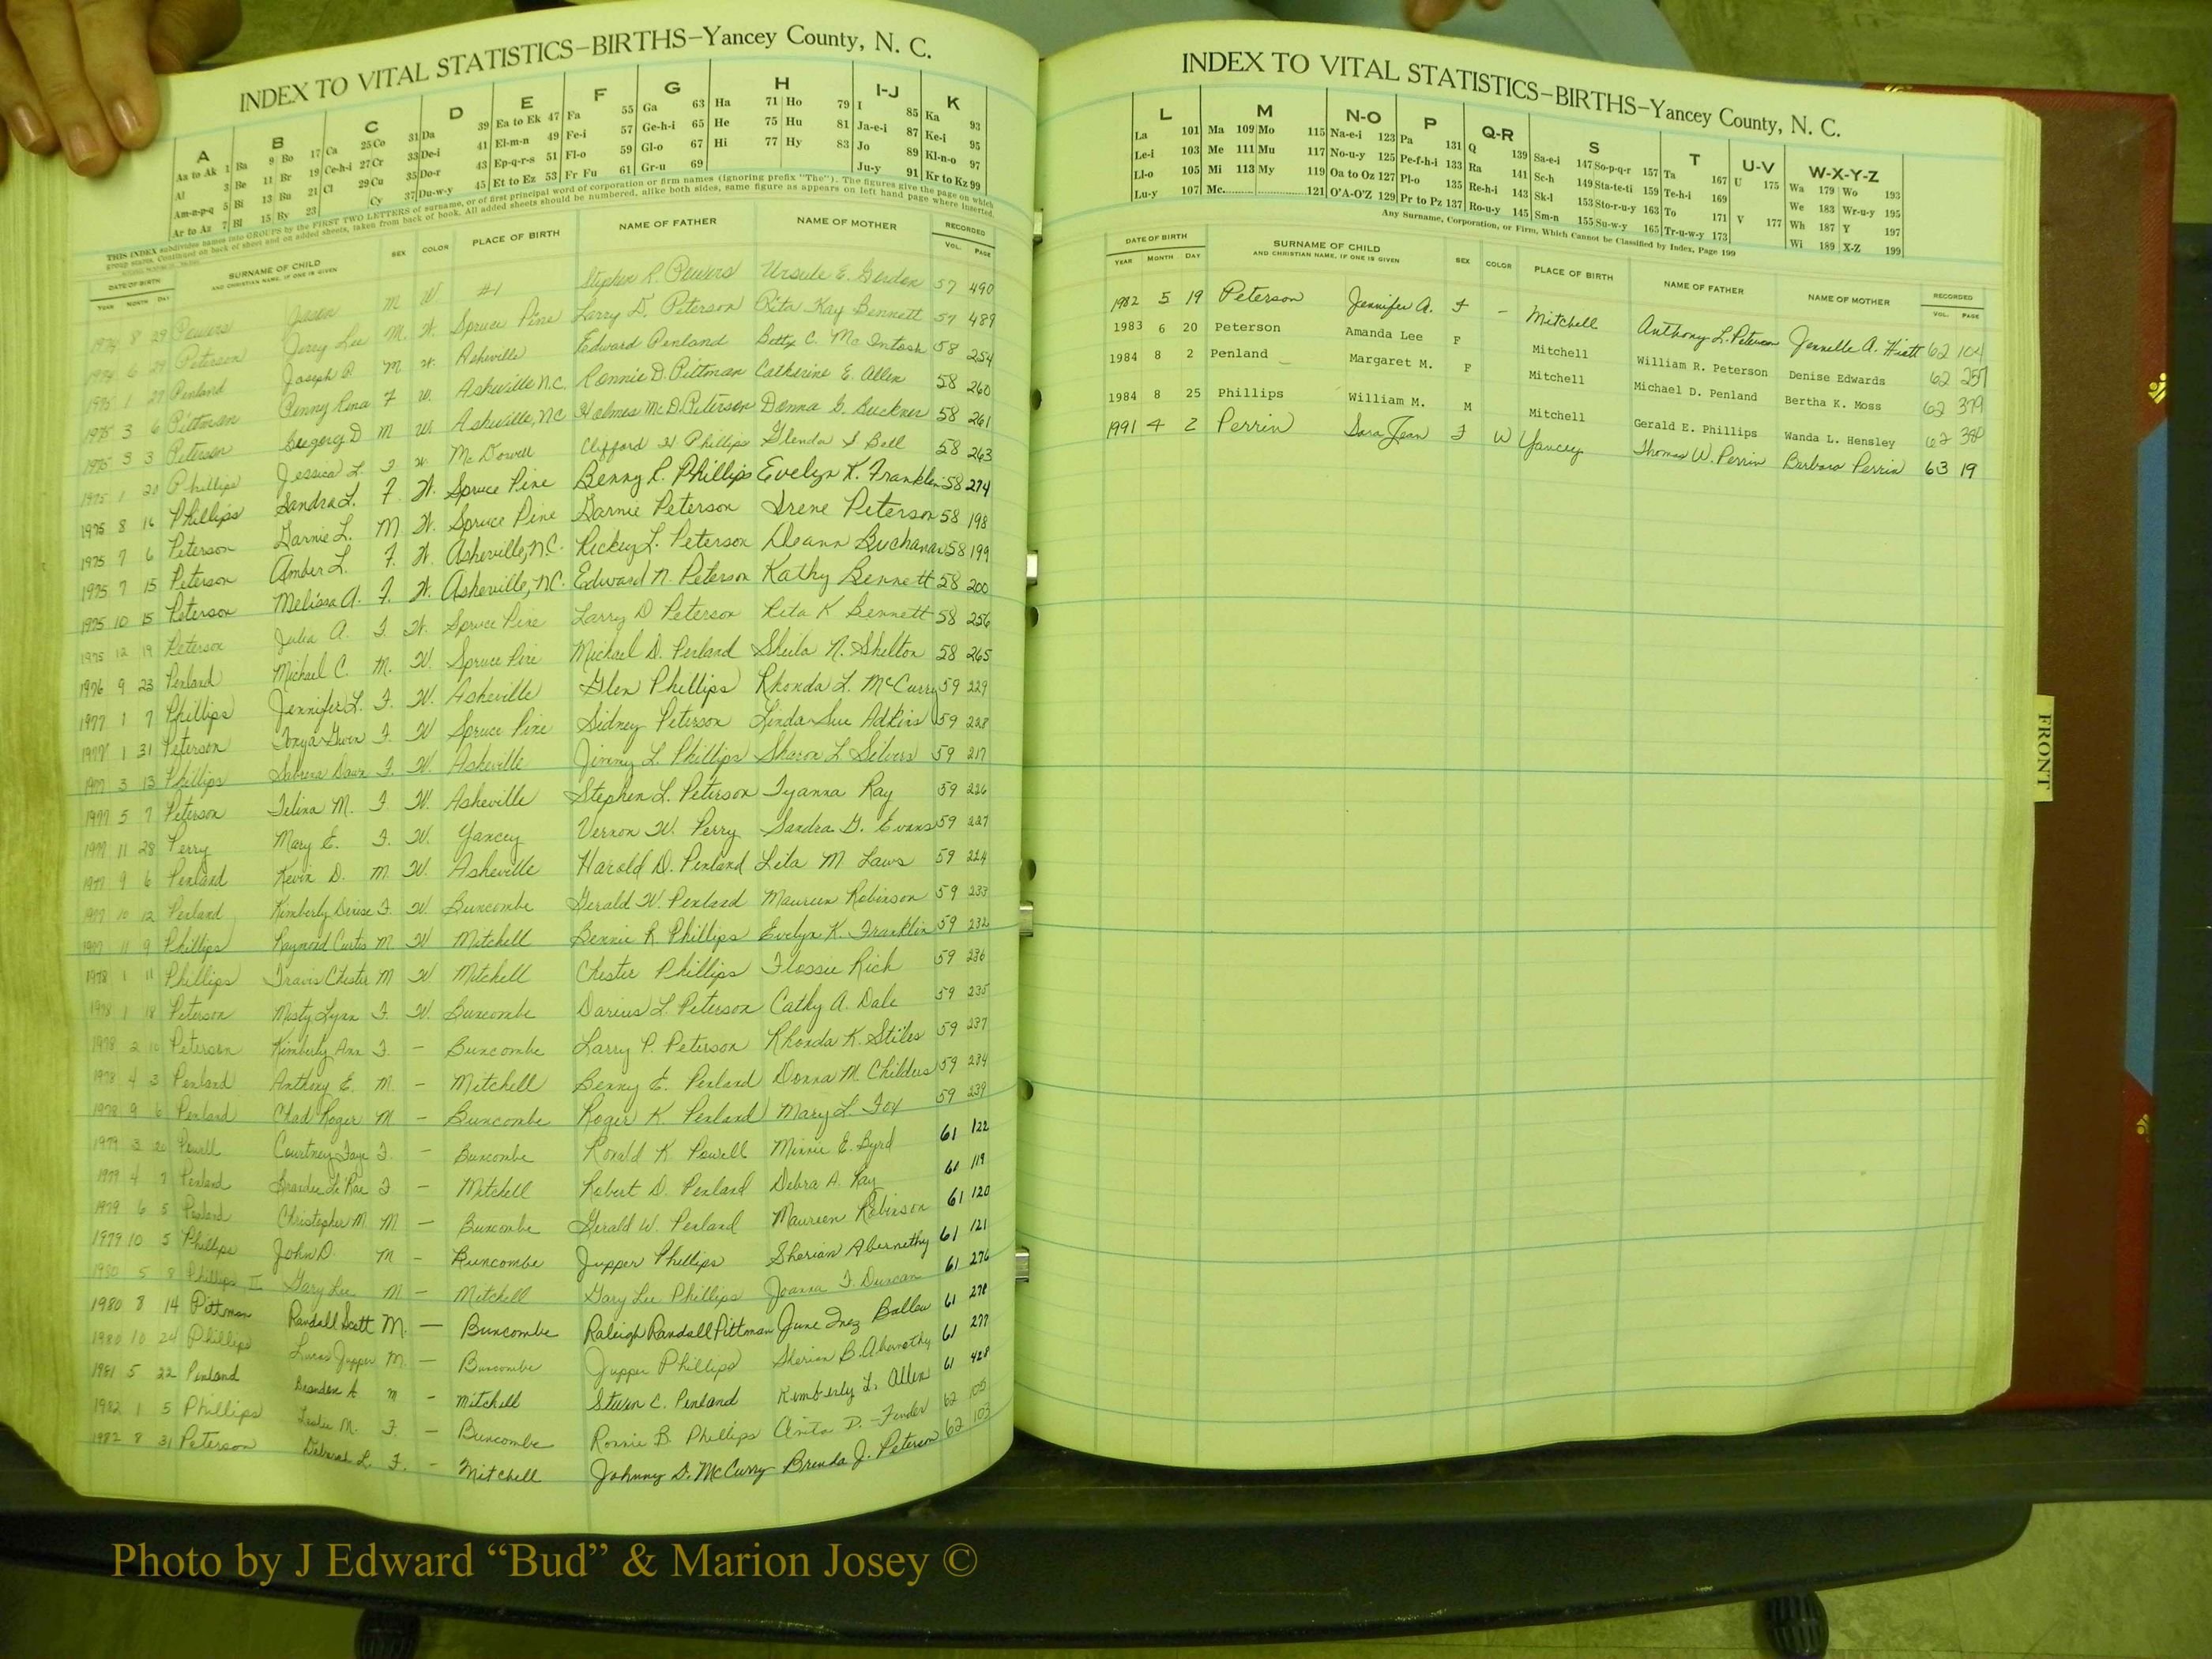 INDEX TO VITAL STATISTICS–BIRTHS–Yancey County, N. C.
A B C D E F G H I-J K
Aa to Ak 1 Ba 9 Bo 17 Ca 25 Co 31 Da 39 Ea to Ek 47 Fa 55 Ga 63 Ha 71 Ho 79 I 85 Ka 93
Al 3 Be 11 Br 19 Ce-h-i 27 Cr 33 De-i 41 El-m-n 49 Fe-i 57 Ge-h-i 65 He 75 Hu 81 Ja-e-i 87 Ke-i 95
Am-n-p-q 5 Bi 13 Bu 21 Cl 29 Cu 35 Do-r 43 Ep-q-r-s 51 Fl-o 59 Gl-o 67 Hi 77 Hy 83 Jo 89 Kl-n-o 97
Ar to Az 7 Bl 15 By 23 Cy 37 Du-w-y 45 Et to Ez 53 Fr Fu 61 Gr-u 69 Ju-y 91 Kr to Kz 99
THIS INDEX subdivides names into GROUPS by the FIRST TWO LETTERS of surname, or of first principal word of corporation or firm names (ignoring prefix "The"). The figures give the page on which
group starts. Continued on back of sheet and on added sheets, taken from back of book. All added sheets should be numbered, alike both sides, same figure as appears on left hand page where inserted.
DATE OF BIRTH SURNAME OF CHILD SEX COLOR PLACE OF BIRTH NAME OF FATHER NAME OF MOTHER RECORDED
YEAR MONTH DAY AND CHRISTIAN NAME, IF ONE IS GIVEN VOL. PAGE
1974 8 29 Powers Jason M W #1 Stephen R. Powers Ursula E. Gordon 57 490
1974 6 29 Peterson Jerry Lee M. W. Spruce Pine Larry D. Peterson Rita Kay Bennett 57 489
1975 1 27 Penland Joseph P. M W. Asheville Edward Penland Betty C. McIntosh 58 254
1975 3 6 Pittman Penny Rena F W. Asheville N.C. Ronnie D. Pittman Catherine E. Allen 58 260
1975 3 3 Peterson Gregory D M W. Asheville, NC Holmes McD. Peterson Donna G. Buckner 58 261
1975 1 20 Phillips Jessica L. F W. McDowell Clifford H. Phillips Glenda S Ball 58 263
1975 8 16 Phillips Sandra L. F. W. Spruce Pine Benny R. Phillips Evelyn K. Franklin 58 274
1975 7 6 Peterson Darnie L. M W. Spruce Pine Darnie Peterson Irene Peterson 58 198
1975 7 15 Peterson Amber L. F. W. Asheville, N.C. Rickey L. Peterson Deann Buchanan 58 199
1975 10 15 Peterson Melissa A. F. W. Asheville, N.C. Edward N. Peterson Kathy Bennett 58 200
1975 12 19 Peterson Julia A. F. W. Spruce Pine Larry D Peterson Rita K Bennett 58 256
1976 9 23 Penland Michael C. M. W. Spruce Pine Michael D. Penland Sheila N. Shelton 58 265
1977 1 7 Phillips Jennifer L. F. W. Asheville Glen Phillips Rhonda L. McCurry 59 229
1977 1 31 Peterson Tonya Gwen F. W Spruce Pine Sidney Peterson Linda Sue Adkins 59 228
1977 3 13 Phillips Sabrena Dawn F. W. Asheville Jimmy L. Phillips Sharon L Silvers 59 217
1977 5 7 Peterson Telina M. F. W. Asheville Stephen L. Peterson Tyanna Ray 59 226
1977 11 28 Perry Mary E. F. W. Yancey Vernon W. Perry Sandra G. Evans 59 227
1977 9 6 Penland Kevin D. M W. Asheville Harold D. Penland Lila M. Laws 59 224
1977 10 12 Penland Kimberly Denise F. W. Buncombe Gerald W. Penland Maureen Robinson 59 233
1977 11 9 Phillips Raymond Curtis M. W Mitchell Bennie R. Phillips Evelyn K. Franklin 59 232
1978 1 11 Phillips Travis Chester M W Mitchell Chester Phillips Flossie Rich 59 236
1978 1 18 Peterson Misty Lynn F. W. Buncombe Darius L. Peterson Cathy A. Dale 59 235
1978 2 10 Peterson Kimberly Ann F. – Buncombe Larry P. Peterson Rhonda K. Stiles 59 237
1978 4 3 Penland Anthony E. M. – Mitchell Benny E. Penland Donna M. Childers 59 234
1978 9 6 Penland Chad Roger M – Buncombe Roger K. Penland Mary L. Fox 59 239
1979 3 20 Powell Courtney Faye F. – Buncombe Ronald K. Powell Minnie E. Byrd 61 122
1979 4 7 Penland F – Mitchell Robert D. Penland Debra A. Ray 61 119
1979 6 5 Penland Christopher M. M – Buncombe Gerald W. Penland Maureen Robinson 61 120
1979 10 5 Phillips John D. M – Buncombe Jupper Phillips Sherian Abernethy 61 121
1980 5 8 Phillips, II Gary Lee M – Mitchell Gary Lee Phillips Joanna F. Duncan 61 276
1980 8 14 Pittman Randall Scott M. – Buncombe Raleigh Randall Pittman June Inez Ballew 61 278
1980 10 24 Phillips Lucas Jupper M. – Buncombe Jupper Phillips Sherian B. Abernethy 61 277
1981 5 22 Penland Brandon A. M – Mitchell Steven C. Penland Kimberly L. Allen 61 428
1982 1 5 Phillips Leslie M. F. – Buncombe Ronnie B. Phillips Anita D. Fender 62 105
1982 8 31 Peterson Deborah L. F. – Mitchell Johnny D. McCurry Brenda J. Peterson 62 103
INDEX TO VITAL STATISTICS–BIRTHS–Yancey County, N. C.
L M N-O P Q-R S T U-V W-X-Y-Z
La 101 Ma 109 Mo 115 Na-e-i 123 Pa 131 Q 139 Sa-e-i 147 So-p-q-r 157 Ta 167 U 175 Wa 179 Wo 193
Le-i 103 Me 111 Mu 117 No-u-y 125 Pe-f-h-i 133 Ra 141 Sc-h 149 Sta-te-ti 159 Te-h-i 169 We 183 Wr-u-y 195
Ll-o 105 Mi 113 My 119 Oa to Oz 127 Pl-o 135 Re-h-i 143 Sk-l 153 Sto-r-u-y 163 To 171 V 177 Wh 187 Y 197
Lu-y 107 Mc 121 O'A-O'Z 129 Pr to Pz 137 Ro-u-y 145 Sm-n 155 Su-w-y 165 Tr-u-w-y 173 Wi 189 X-Z 199
Any Surname, Corporation, or Firm, Which Cannot be Classified by Index, Page 199
DATE OF BIRTH SURNAME OF CHILD SEX COLOR PLACE OF BIRTH NAME OF FATHER NAME OF MOTHER RECORDED
YEAR MONTH DAY AND CHRISTIAN NAME, IF ONE IS GIVEN VOL. PAGE
1982 5 19 Peterson Jennifer A. F – Mitchell Anthony L. Peterson Jennelle A. Hiatt 62 104
1983 6 20 Peterson Amanda Lee F Mitchell William R. Peterson Denise Edwards 62 257
1984 8 2 Penland Margaret M. F Mitchell Michael D. Penland Bertha K. Moss 62 379
1984 8 25 Phillips William M. M Mitchell Gerald E. Phillips Wanda L. Hensley 62 380
1991 4 2 Perrin Sara Jean F W Yancey Thomas W. Perrin Barbara Perrin 63 19
FRONT
Photo by J Edward “Bud” & Marion Josey ©